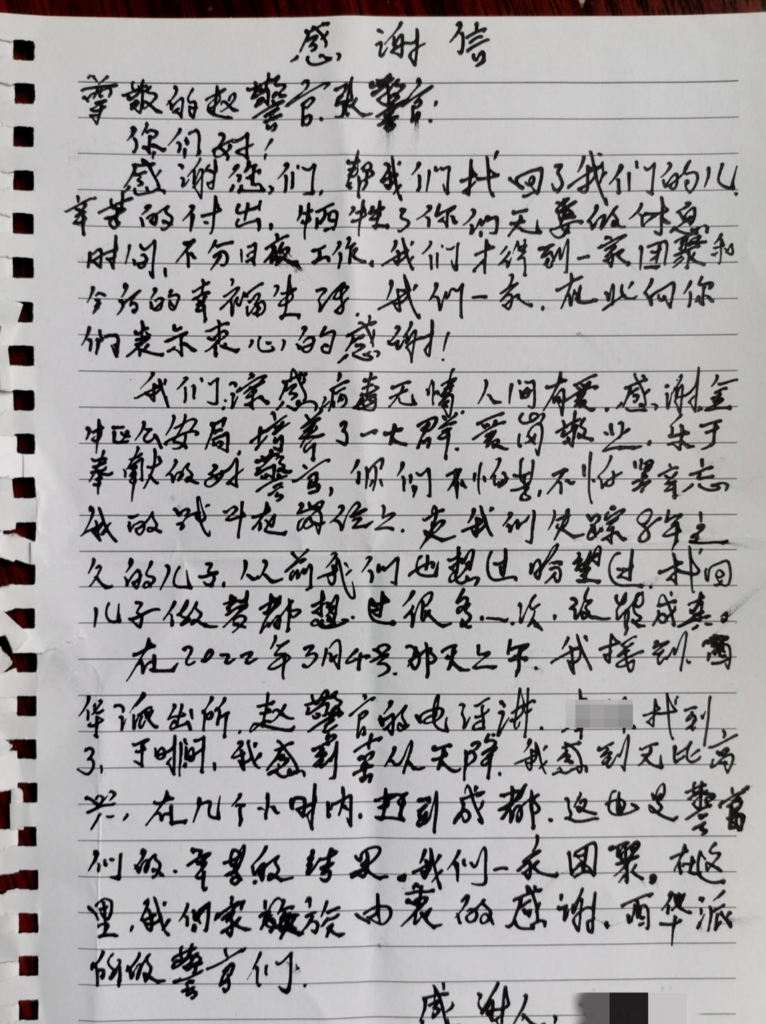 感谢信
尊敬的赵警官、张警官:
你们好!
感谢您们,帮我们找回了我们的儿
辛苦的付出,牺牲了你们无数的休息
时间,不分日夜工作,我们才得到一家团聚和
今后的幸福生活,我们一家,在此向你
们表示衷心的感谢!
我们深感病毒无情,人间有爱,感谢金
牛区公安局,培养了一大群,爱岗敬业,乐于
奉献的好警官,你们不怕苦,不怕累辛忘
我的战斗在岗位上,是我们失踪8年之
久的儿子,从前我们也想过盼望过,找回
儿子做梦都想过很多次,没能成真。
在2022年3月4号,那天上午,我接到西
华派出所,赵警官的电话讲,找到
了,于时间,我感到喜从天降,我感到无比高
兴,在几个小时内,赶到成都,这也是警官
们的,辛苦的结果。我们一家团聚。在这
里,我们家族由衷的感谢,西华派
所的警官们.
感谢人: